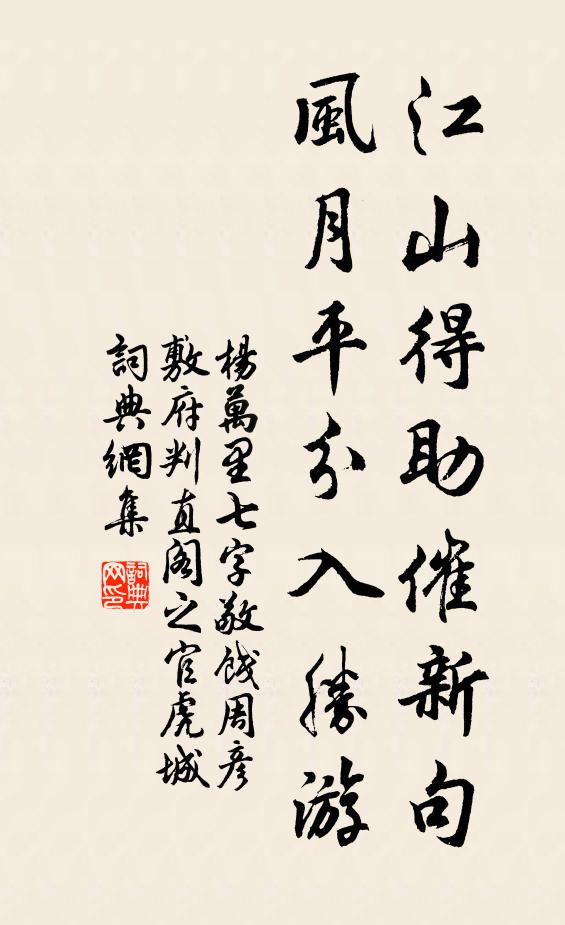 江山得助催新句
風月平分入勝游
楊萬里七字敬餞周彦
敷府判直閣之官虎城
詞典網集
詞典网印